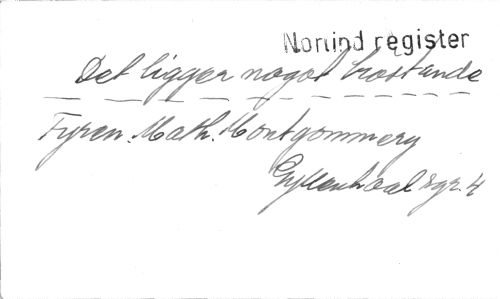 Norrind register
Det ligger något tröstande
Fyren. Math. Montgommery
Gyllenhaalsgr. 4